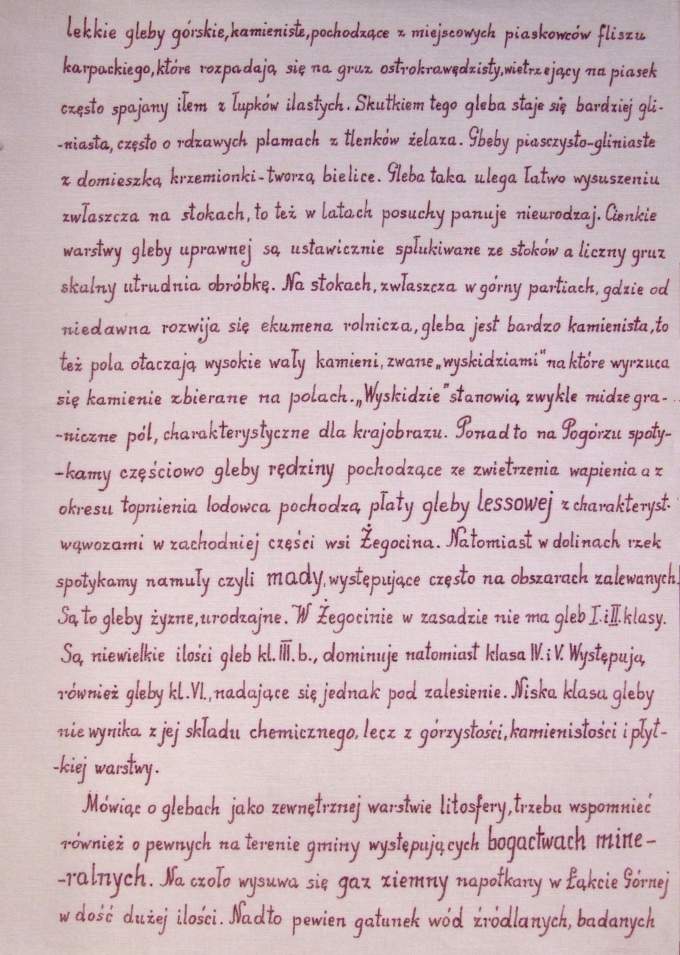 lekkie gleby górskie, kamieniste, pochodzące z miejscowych piaskowców fliszu
karpackiego, które rozpadają się na gruz ostrokrawędzisty, wietrzejący na piasek
często spajany iłem z łupków ilastych. Skutkiem tego gleba staje się bardziej gli-
-niasta, często o rdzawych plamach z tlenków żelaza. Gbeby piasczysto-gliniaste
z domieszką krzemionki - tworzą bielice. Gleba taka ulega łatwo wysuszeniu
zwłaszcza na stokach, to też w latach posuchy panuje nieurodzaj. Cienkie
warstwy gleby uprawnej są ustawicznie spłukiwane ze stoków a liczny gruz
skalny utrudnia obróbkę. Na stokach, zwłaszcza w górny partiach, gdzie od
niedawna rozwija się ekumena rolnicza, gleba jest bardzo kamienista, to
też pola otaczają wysokie wały kamieni, zwane „wyskidziami" na które wyrzuca
się kamienie zbierane na polach. „Wyskidzie" stanowią zwykle midze gra-
-niczne pól, charakterystyczne dla krajobrazu. Ponadto na Pogórzu spoty-
-kamy częściowo gleby rędziny pochodzące ze zwietrzenia wapienia a z
okresu topnienia lodowca pochodzą płaty gleby lessowej z charakteryst.
wąwozami w zachodniej części wsi Żegocina. Natomiast w dolinach rzek
spotykamy namuły czyli mady, występujące często na obszarach zalewanych.
Są to gleby żyzne, urodzajne. W Żegocinie w zasadzie nie ma gleb I. i II. klasy.
Są niewielkie ilości gleb kl. III. b., dominuje natomiast klasa IV. i V. Występują
również gleby kl. VI., nadające się jednak pod zalesienie. Niska klasa gleby
nie wynika z jej składu chemicznego, lecz z górzystości, kamienistości i płyt-
-kiej warstwy.
Mówiąc o glebach jako zewnętrznej warstwie litosfery, trzeba wspomnieć
również o pewnych na terenie gminy występujących bogactwach mine-
-ralnych. Na czoło wysuwa się gaz ziemny napotkany w Łąkcie Górnej
w dość dużej ilości. Nadto pewien gatunek wód źródlanych, badanych